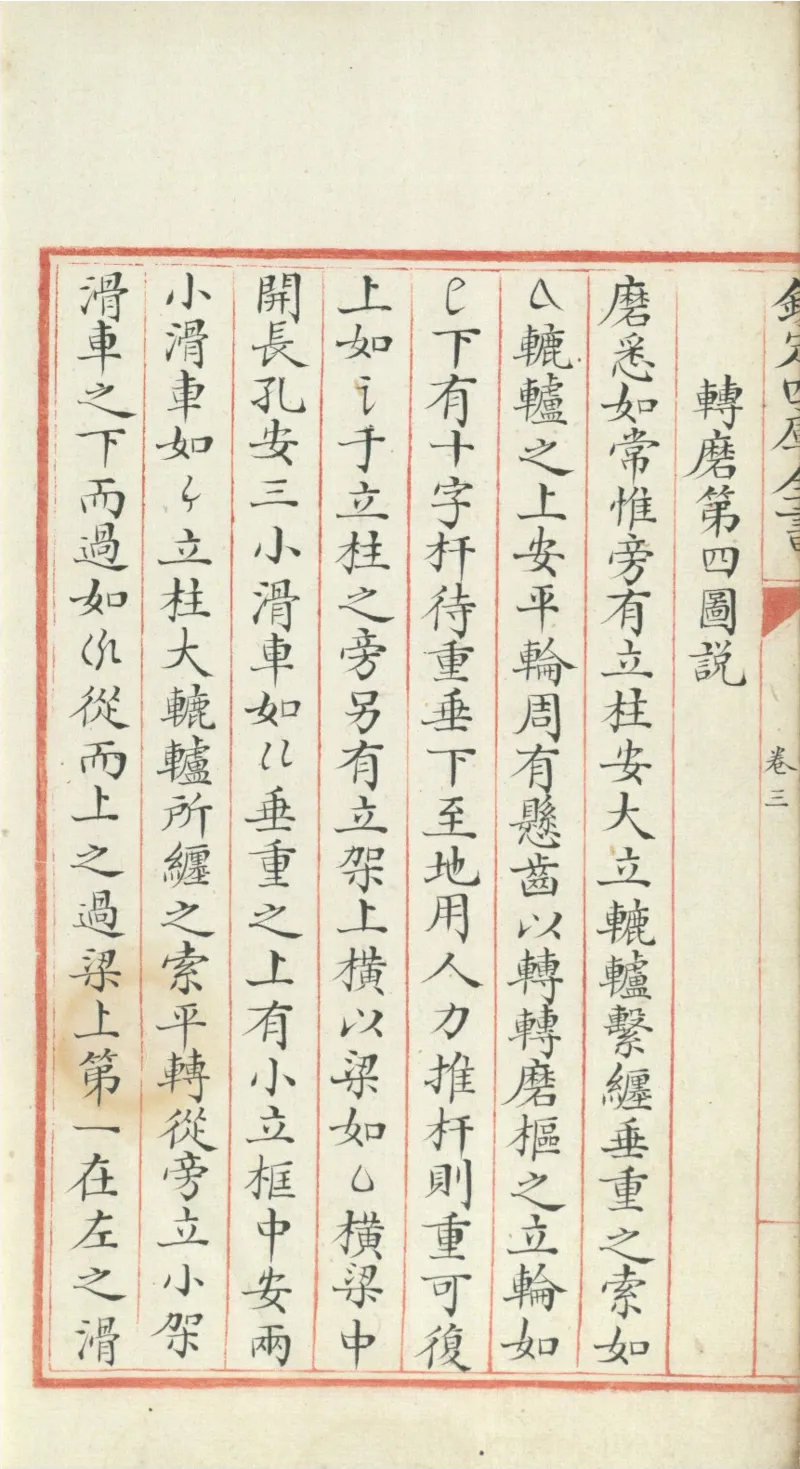 欽定四庫全書
卷三
轉磨第四圖説
磨悉如常惟旁有立柱安大立轆轤繫纏垂重之索如
轆轤之上安平輪周有懸齒以轉轉磨樞之立輪如
下有十字杆待重垂下至地用人力推杆則重可復
上如于立柱之旁另有立架上横以梁如横梁中
開長孔安三小滑車如垂重之上有小立框中安兩
小滑車如立柱大轆轤所纏之索平轉從旁立小架
滑車之下而過如從而上之過梁上第一在左之滑